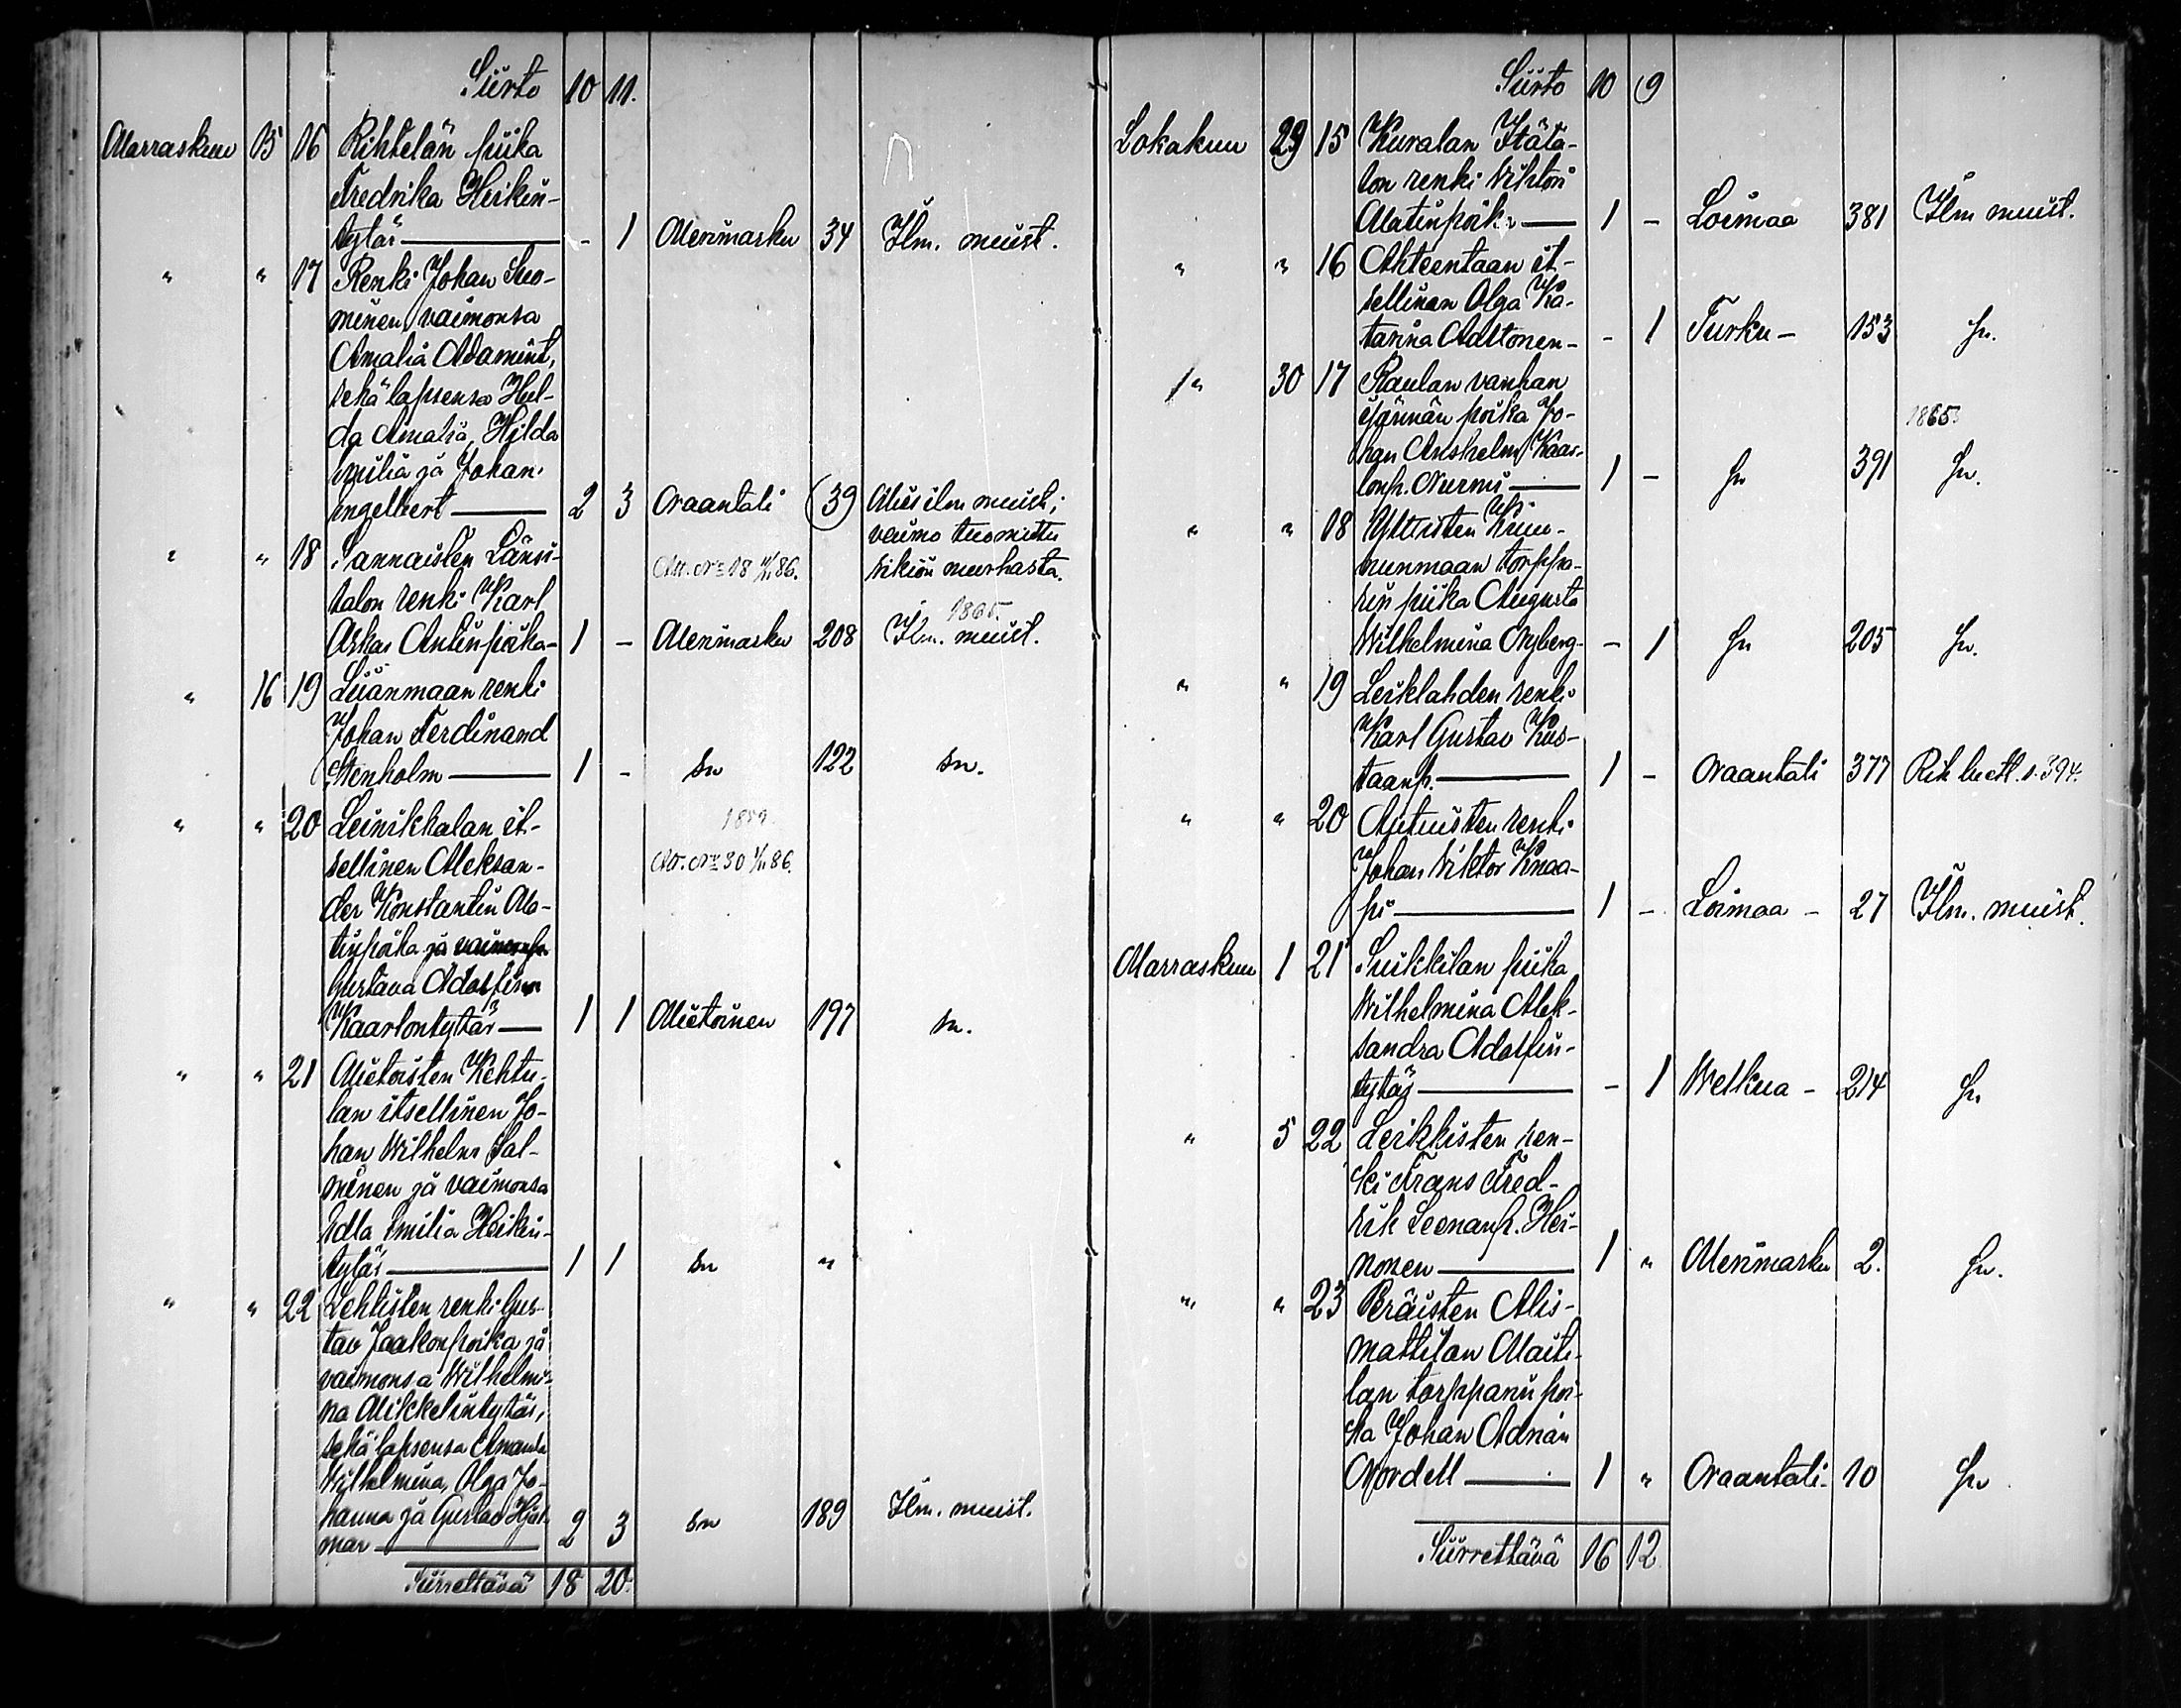 Siirto 10 11.
Marraskuu 15 16 Rihtelän piika
Fredrika Heikin-
tytär — - 1 Merimasku 34 Ilm. muist.
" " 17 Renki Johan Suo-
minen, vaimonsa
Amalia Adamint,
sekä lapsensa Hul-
da Amalia, Hilda
Emilia ja Johan
Engelbert — 2 3 Naantali (39) Mies ilm. muist;
vaimo tuomittu
sikiön murhasta.
" " 18 Sannaisten Länsi- Att. No 18 86.
talon renki Karl 1865.
Oskar Antinpoika - 1 - Merimasku 208 Ilm. muist.
" 16 19 Liianmaan renki
Johan Ferdinand
Stenholm — 1 - sn 122 sn.
" " 20 Leinikkalan it- 1889.
sellinen Aleksan- Att. No 30 86.
der Konstantin Ma-
tinpoika ja vaimonsa
Gustava Adolfina
Kaarlontytär — 1 1 Mietoinen 197 sn.
" " 21 Mietoisten Kehtu-
lan itsellinen Jo-
han Wilhelm Sal-
minen ja vaimonsa
Edla Emilia Heikin-
tytär — 1 1 sn "
" " 22 Lehtisten renki Gus-
tav Jaakonpoika ja
vaimonsa Wilhelmi-
na Mikkelintytär,
sekä lapsensa Amanda
Wilhelmina, Olga Jo-
hanna ja Gustav Hjal-
mar — 2 3 sn 189 Ilm. muist.
Siirrettävä 18 20.
Siirto 10 9
Lokakuu 29 15 Kuralan Itäta-
lon renki Viktori
Matinpoika — 1 - Loimaa 381 Ilm muist.
" " 16 Ahteentaan it-
sellinen Olga Ka-
tarina Aaltonen - - 1 Turku - 153 Sn.
" 30 17 Raulan vanhan
isännän poika Jo- 1865
han Anshelm Kaar-
lonp. Nurmi — 1 - Sn 391 Sn.
" " 18 Yltöisten Kun-
nunmaan torppa-
rin piika Augusta
Wilhelmina Nyberg - - 1 Sn 205 Sn.
" " 19 Leiklahden renki
Karl Gustav Kus-
taanp. — 1 - Naantali 377 Rik luett. s. 394.
" " 20 Antuisten renki
Johan Viktor Knaa-
pi — 1 - Loimaa - 27 Ilm. muist.
Marraskuu 1 21 Suikkilan piika
Wilhelmina Alek-
sandra Adolfin-
tytär — - 1 Welkua - 214 Sn
" 5 22 Leikkisten ren-
ki Frans Fred-
rik Leonanp. Hei-
nonen — 1 " Merimasku 2. Sn.
" " 23 Peräisten Alis-
mattilan Maiti-
lan torpparin poi-
ka Johan Adrian
Nordell — 1 " Naantali - 10 Sn
Siirrettävä 16 12